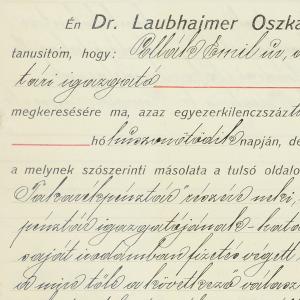 Én Dr. Laubhajmer Oszka
tanusítom, hogy: Pollák Emil úr, a
tári igazgató
megkeresésére ma, azaz egyezerkilenczszáz
hó huszonötödik napján, de
a melynek szószerinti másolata a tulsó oldalo
Takarékpénztár részére neki,
pénztár igazgatójának hat
saját irodámban fizetés végett
a mire tőle a következő válasz